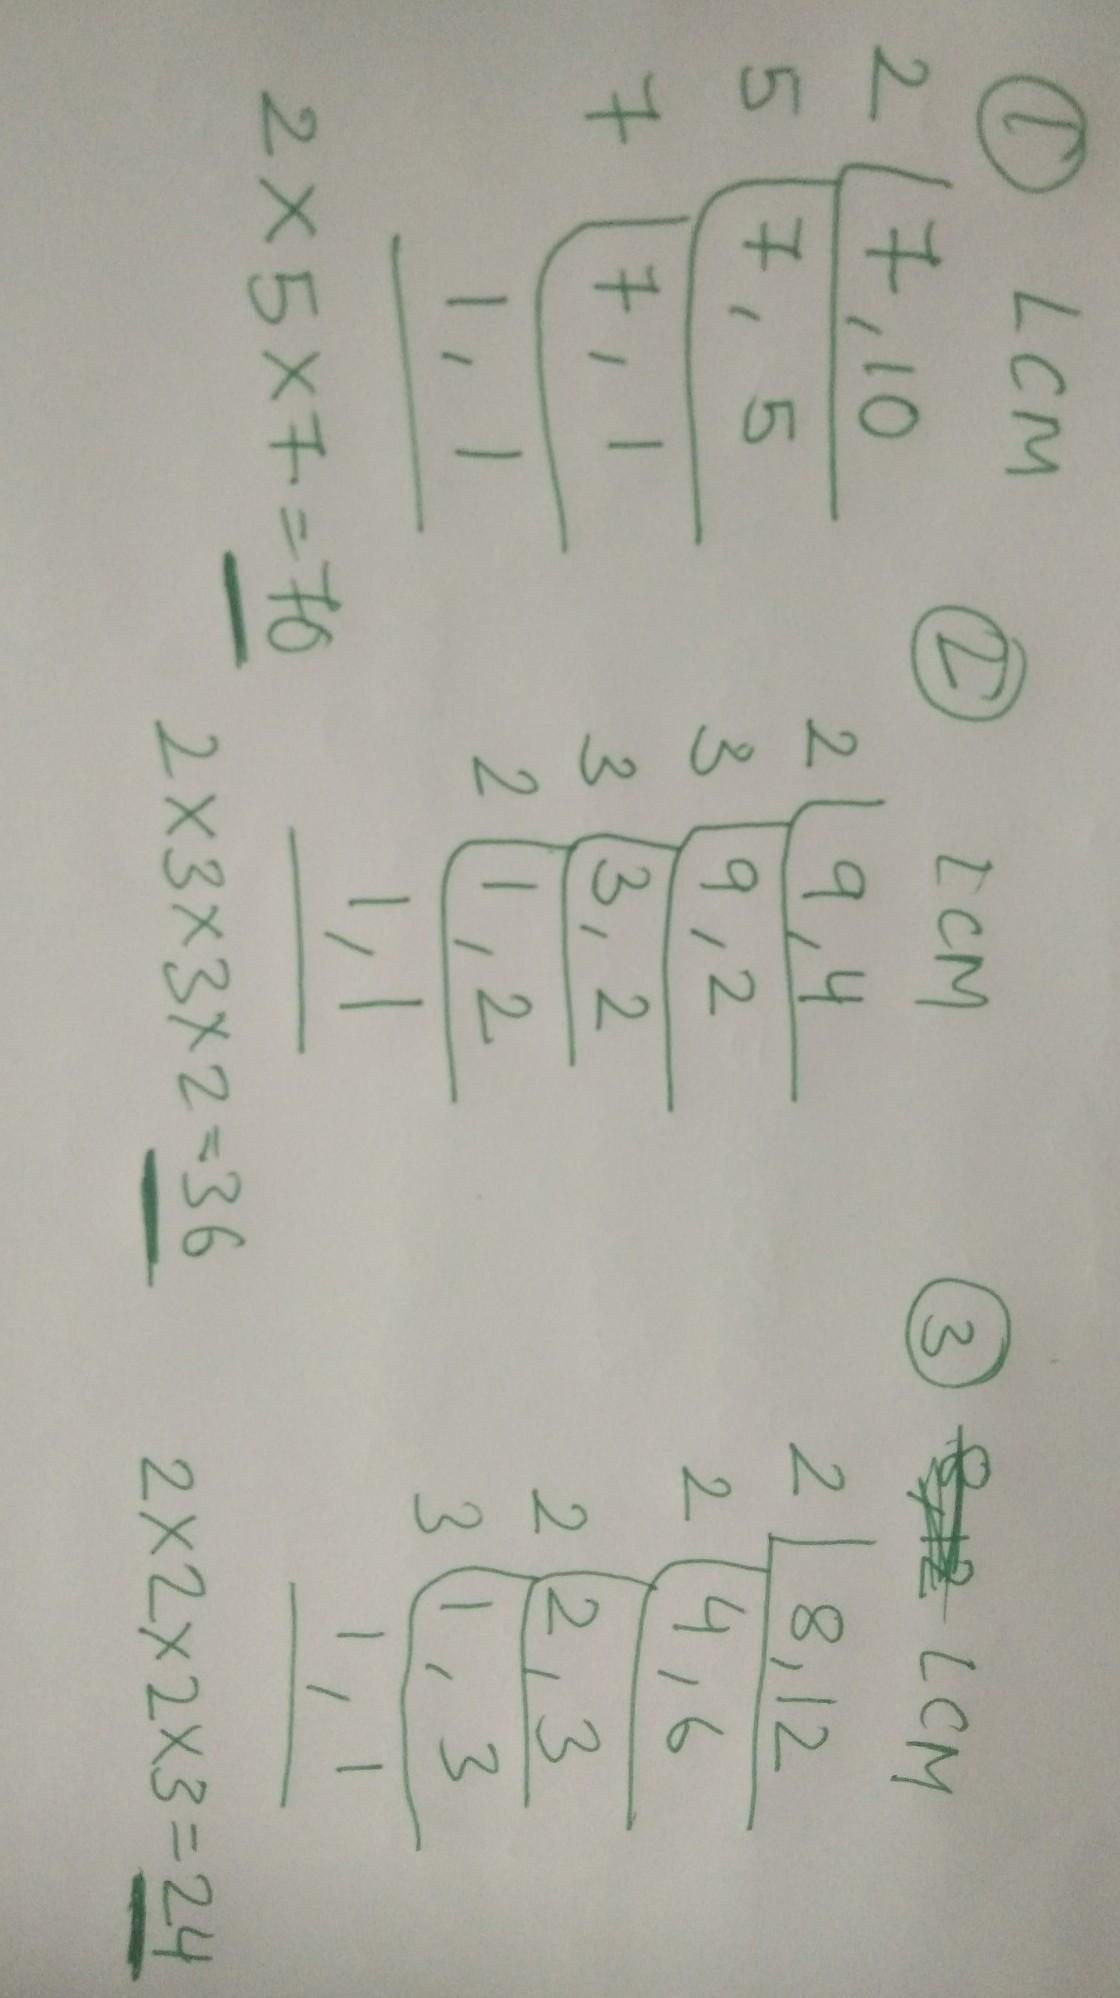 ① LCM
2 | 7,10
5 | 7, 5
7 | 7, 1
1, 1
2 X 5 X 7 = 70
② LCM
2 | 9,4
3 | 9,2
3 | 3,2
2 | 1,2
1,1
2 X 3 X 3 X 2 = 36
③ LCM
2 | 8,12
2 | 4,6
2 | 2,3
3 | 1,3
1,1
2 X 2 X 2 X 3 = 24